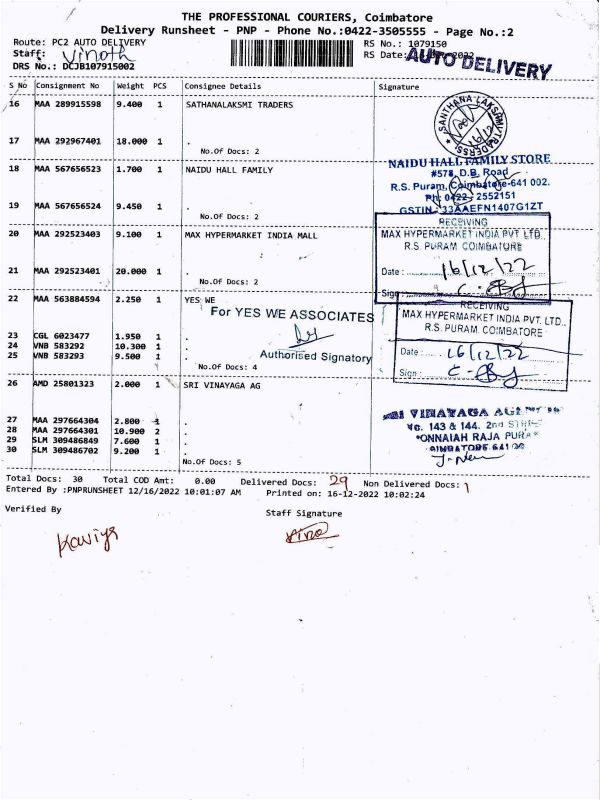 THE PROFESSIONAL COURIERS, Coimbatore
Delivery Runsheet - PNP - Phone No.:0422-3505555 - Page No.:2
Route: PC2 AUTO DELIVERY
RS No.: 1079150
Staff: Vinoth
RS Date: 2022
AUTO DELIVERY
DRS No.: DCJB107915002
S No Consignment No Weight PCS Consignee Details Signature
16 MAA 289915598 9.400 1 SATHANALAKSMI TRADERS
SANTHANA LAKSHMI TRADERS
17 MAA 292967401 18.000 1 .
No.Of Docs: 2
18 MAA 567656523 1.700 1 NAIDU HALL FAMILY
NAIDU HALL FAMILY STORE
#578, D.B. Road
R.S. Puram, Coimbatore-641 002.
Ph: 0422- 2552151
GSTIN : 33AAEFN1407G1ZT
19 MAA 567656524 9.450 1 .
No.Of Docs: 2
20 MAA 292523403 9.100 1 MAX HYPERMARKET INDIA MALL
RECEIVING
MAX HYPERMARKET INDIA PVT LTD.,
R.S. PURAM COIMBATORE
Date : 16/12/22
Sign :
21 MAA 292523401 20.000 1 .
No.Of Docs: 2
22 MAA 563884594 2.250 1 YES WE
For YES WE ASSOCIATES
Authorised Signatory
RECEIVING
MAX HYPERMARKET INDIA PVT. LTD.,
R.S. PURAM, COIMBATORE
Date : 16/12/22
Sign :
23 CGL 6023477 1.950 1 .
24 VNB 583292 10.300 1 .
25 VNB 583293 9.500 1 .
No.Of Docs: 4
26 AMD 25801323 2.000 1 SRI VINAYAGA AG
VINAYAGA
143 & 144, 2nd
PONNAIAH RAJA PURAM
27 MAA 297664304 2.800 1 .
28 MAA 297664301 10.900 2 .
29 SLM 309486849 7.600 1 .
30 SLM 309486702 9.200 1 .
No.Of Docs: 5
Total Docs: 30 Total COD Amt: 0.00 Delivered Docs: 29 Non Delivered Docs: 1
Entered By :PNPRUNSHEET 12/16/2022 10:01:07 AM Printed on: 16-12-2022 10:02:24
Verified By
Staff Signature
Kaviya
Vino